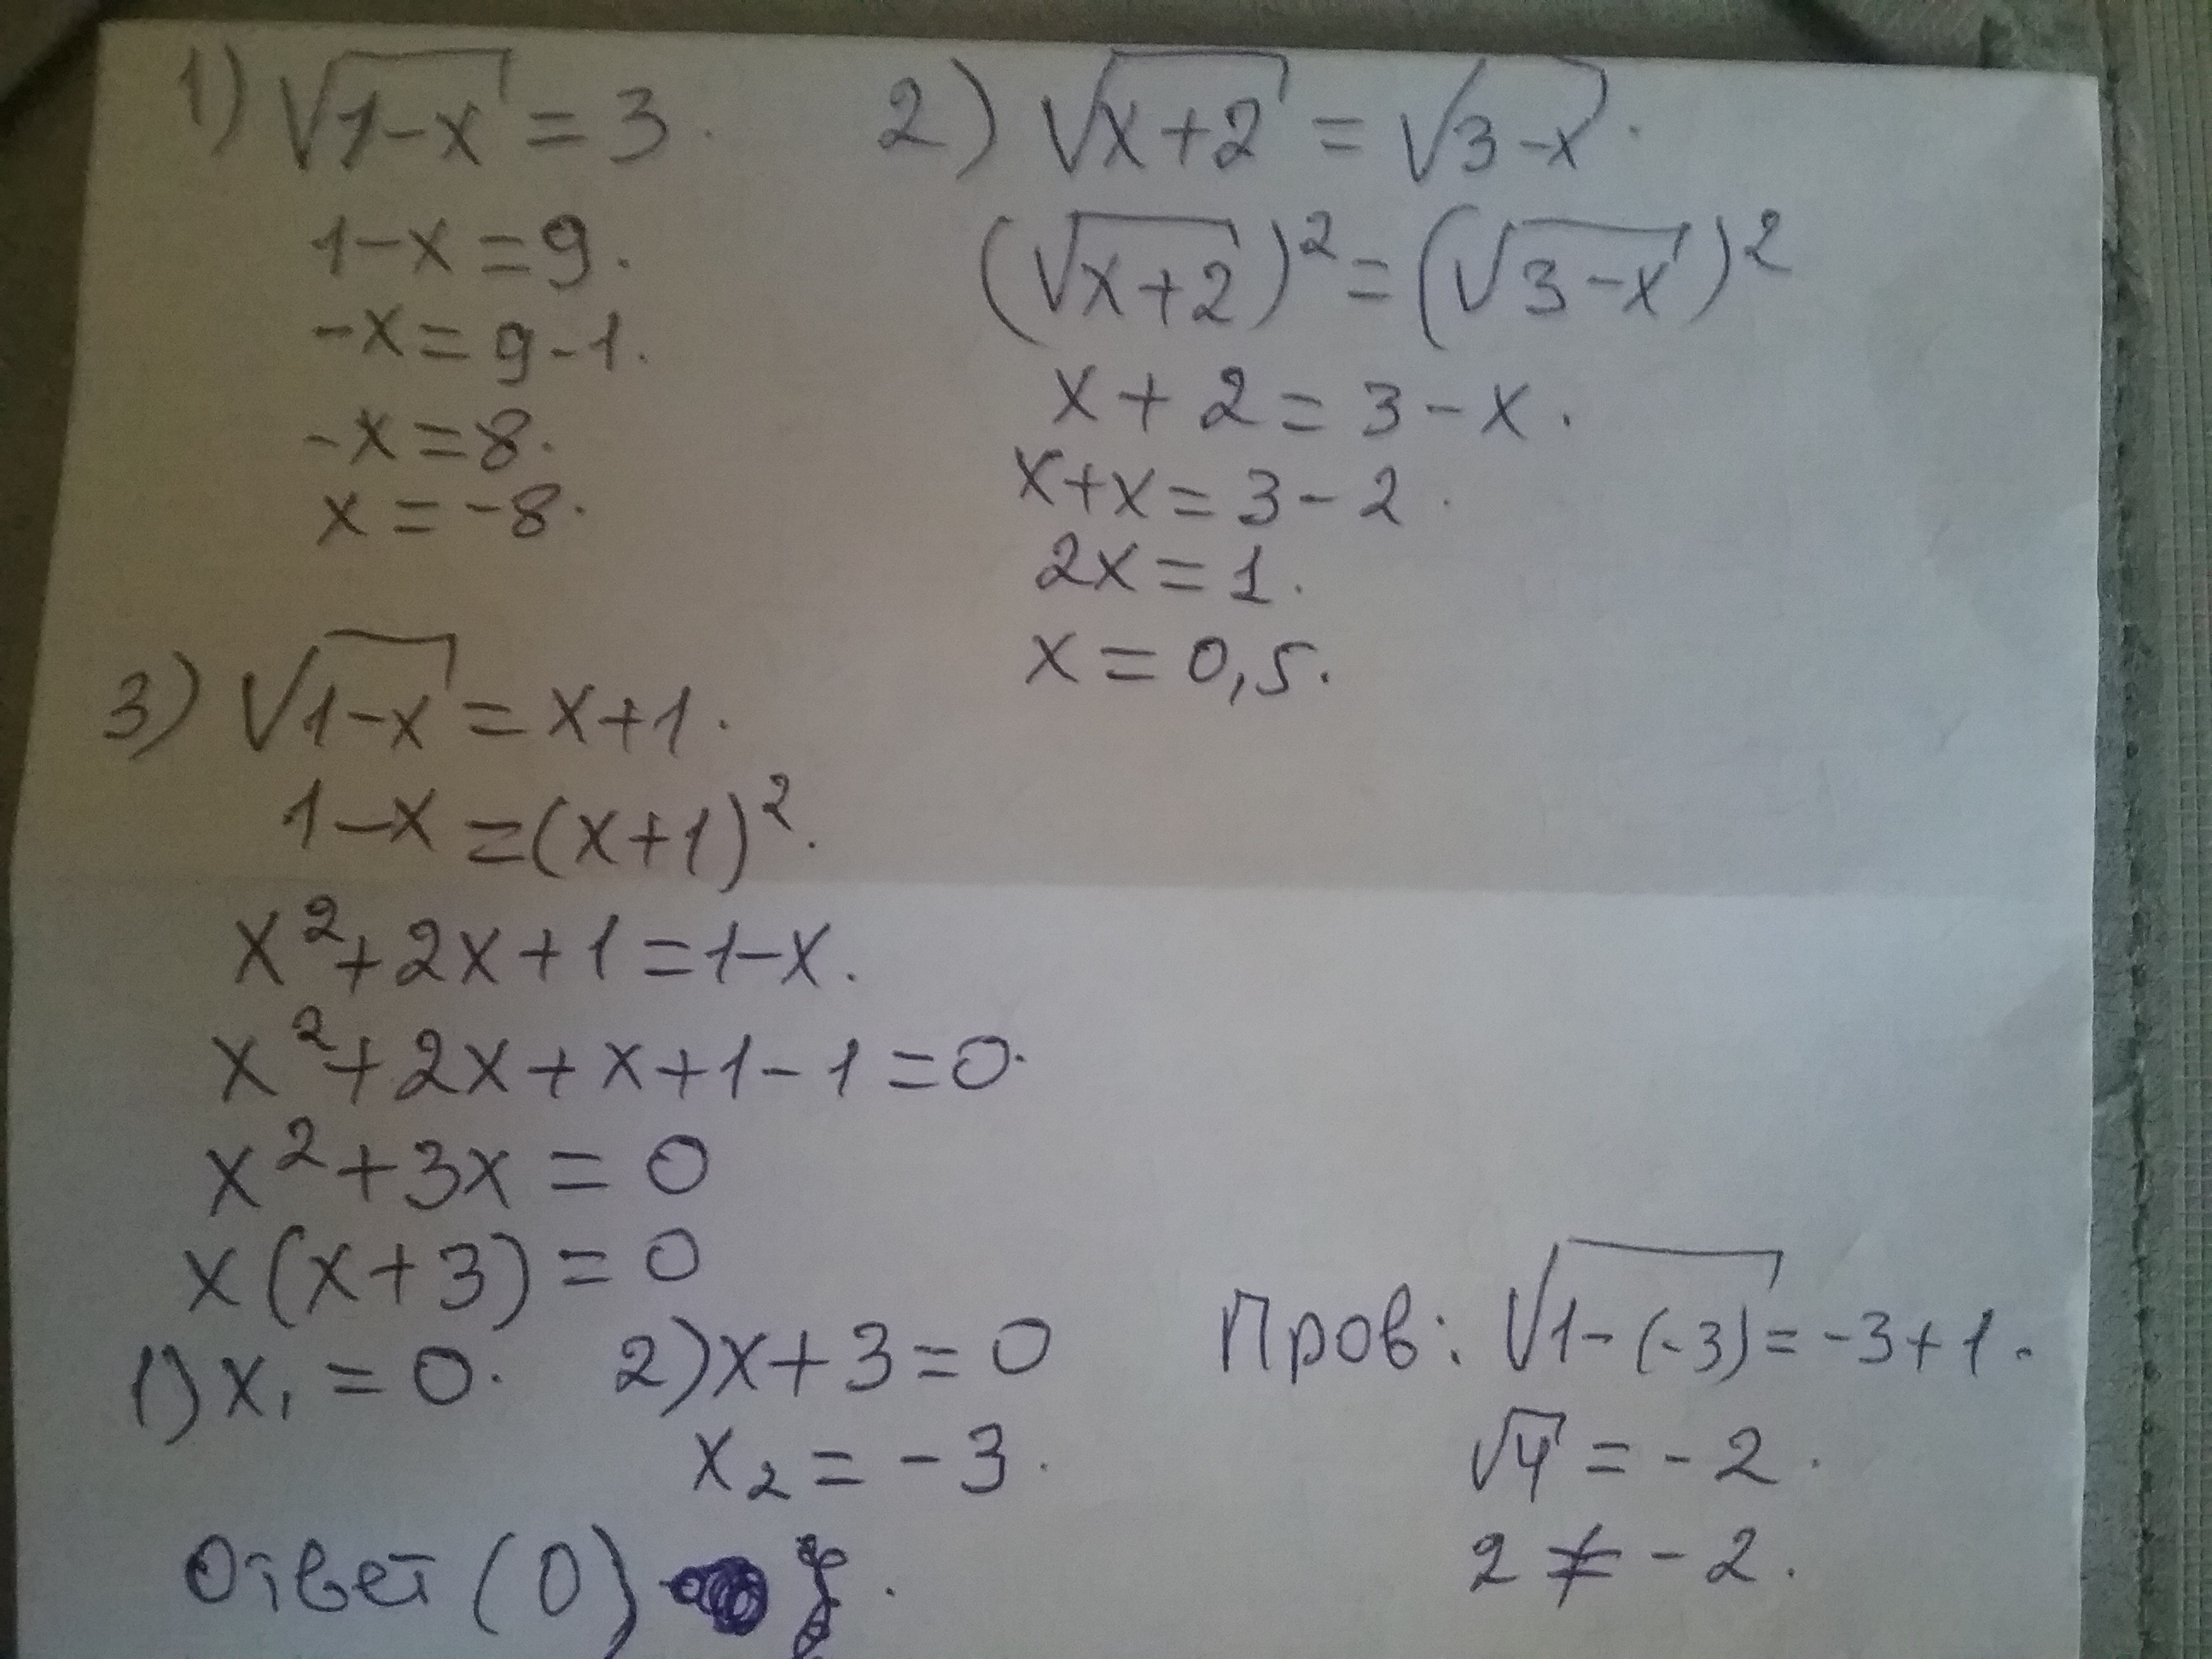 1) √(1-x) = 3.
1-x = 9.
-x = 9-1.
-x = 8.
x = -8.
2) √(x+2) = √(3-x).
(√(x+2))² = (√(3-x))²
x + 2 = 3 - x.
x+x = 3-2.
2x = 1.
x = 0,5.
3) √(1-x) = x+1.
1-x = (x+1)².
x²+2x+1 = 1-x.
x²+2x+x+1-1 = 0.
x²+3x = 0
x(x+3) = 0
1) x₁ = 0. 2) x+3 = 0
x₂ = -3.
Пров: √(1-(-3)) = -3+1.
√4 = -2.
2 ≠ -2.
Ответ (0)